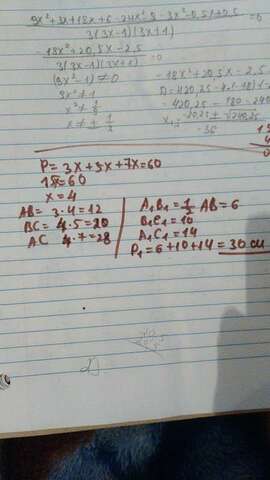 9x²+3x+18x+6-24x²-8-3x²-0,5x+0,5
3(3x-1)(3x+1) =0
-18x²+20,5x-2,5
3(3x-1)(3x+1) =0
(9x²-1)≠0
9x²≠1
x²≠1/9
x≠±1/3
-18x²+20,5x-2,5
D=420,25-4·(-18)·(-2
=420,25-180=240
-36
P=3x+5x+7x=60
15x=60
x=4
AB=3·4=12
BC=4·5=20
AC 4·7=28
A₁B₁=1/2 AB=6
B₁C₁=10
A₁C₁=14
P₁=6+10+14=30 см